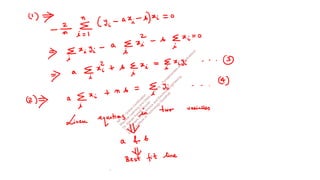 (1) ⇒ - 2/n Σ_{i=1}^{n} (y_i - a x_i - b) x_i = 0
⇒ Σ_i x_i y_i - a Σ_i x_i^2 - b Σ_i x_i = 0
⇒ a Σ_i x_i^2 + b Σ_i x_i = Σ_i x_i y_i ... (3)
(2) ⇒ a Σ_i x_i + n b = Σ_i y_i ... (4)
Linear equations in two variables
⇓
a & b
⇓
Best fit line